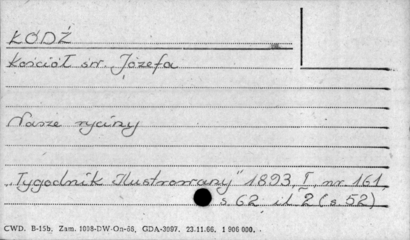 ŁÓDŹ
Kościół św. Józefa
Nasze ryciny
„Tygodnik Ilustrowany" 1893, I, nr. 161,
s. 62 il. 2 (s. 52)
CWD. B-15b. Zam. 1098-DW-On-66, GDA-3097. 23.11.66. 1 906 000.